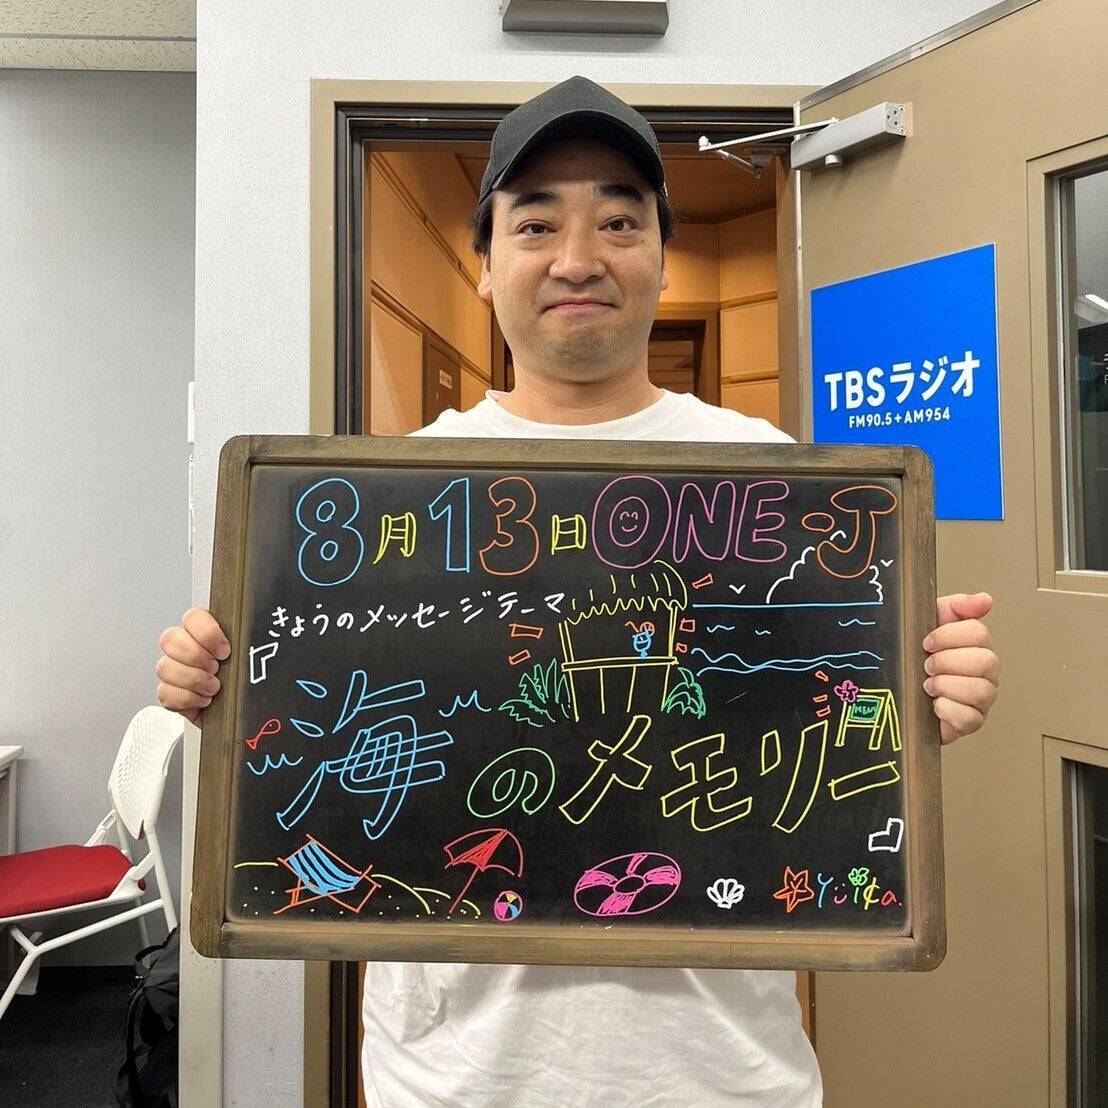 TBSラジオ
FM90.5+AM954
8月13日ONE-J
きょうのメッセージテーマ
「海のメモリー」
MENU
Yuika.